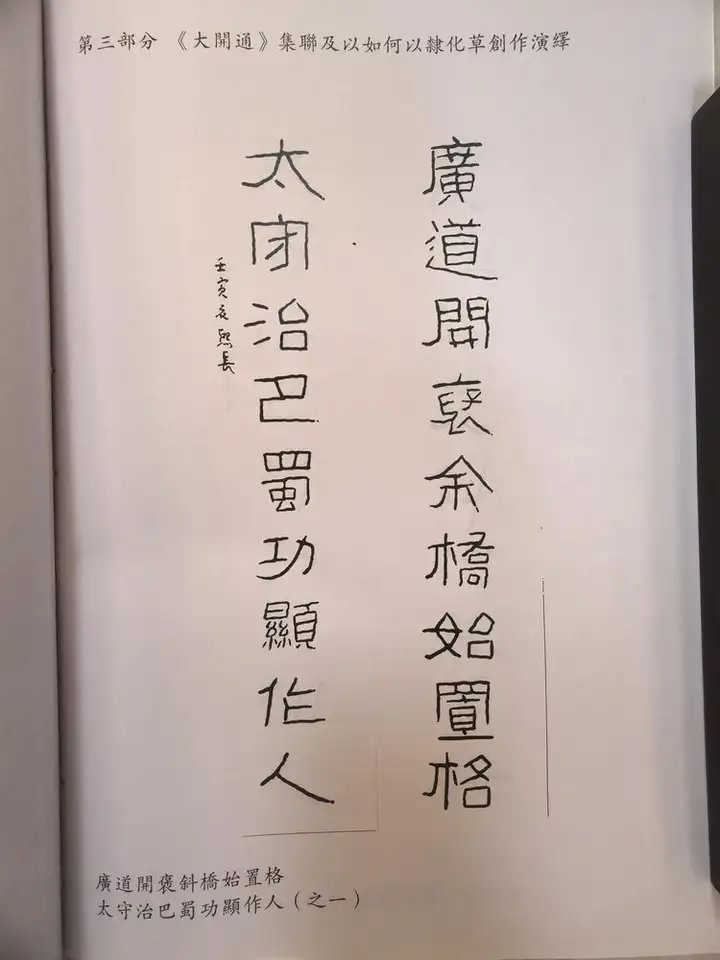 第三部分 《大開通》集聯及以如何以隸化草創作演繹
廣道開裒余橋始置格
太守治巴蜀功顯作人
廣道開褒斜橋始置格
太守治巴蜀功顯作人（之一）